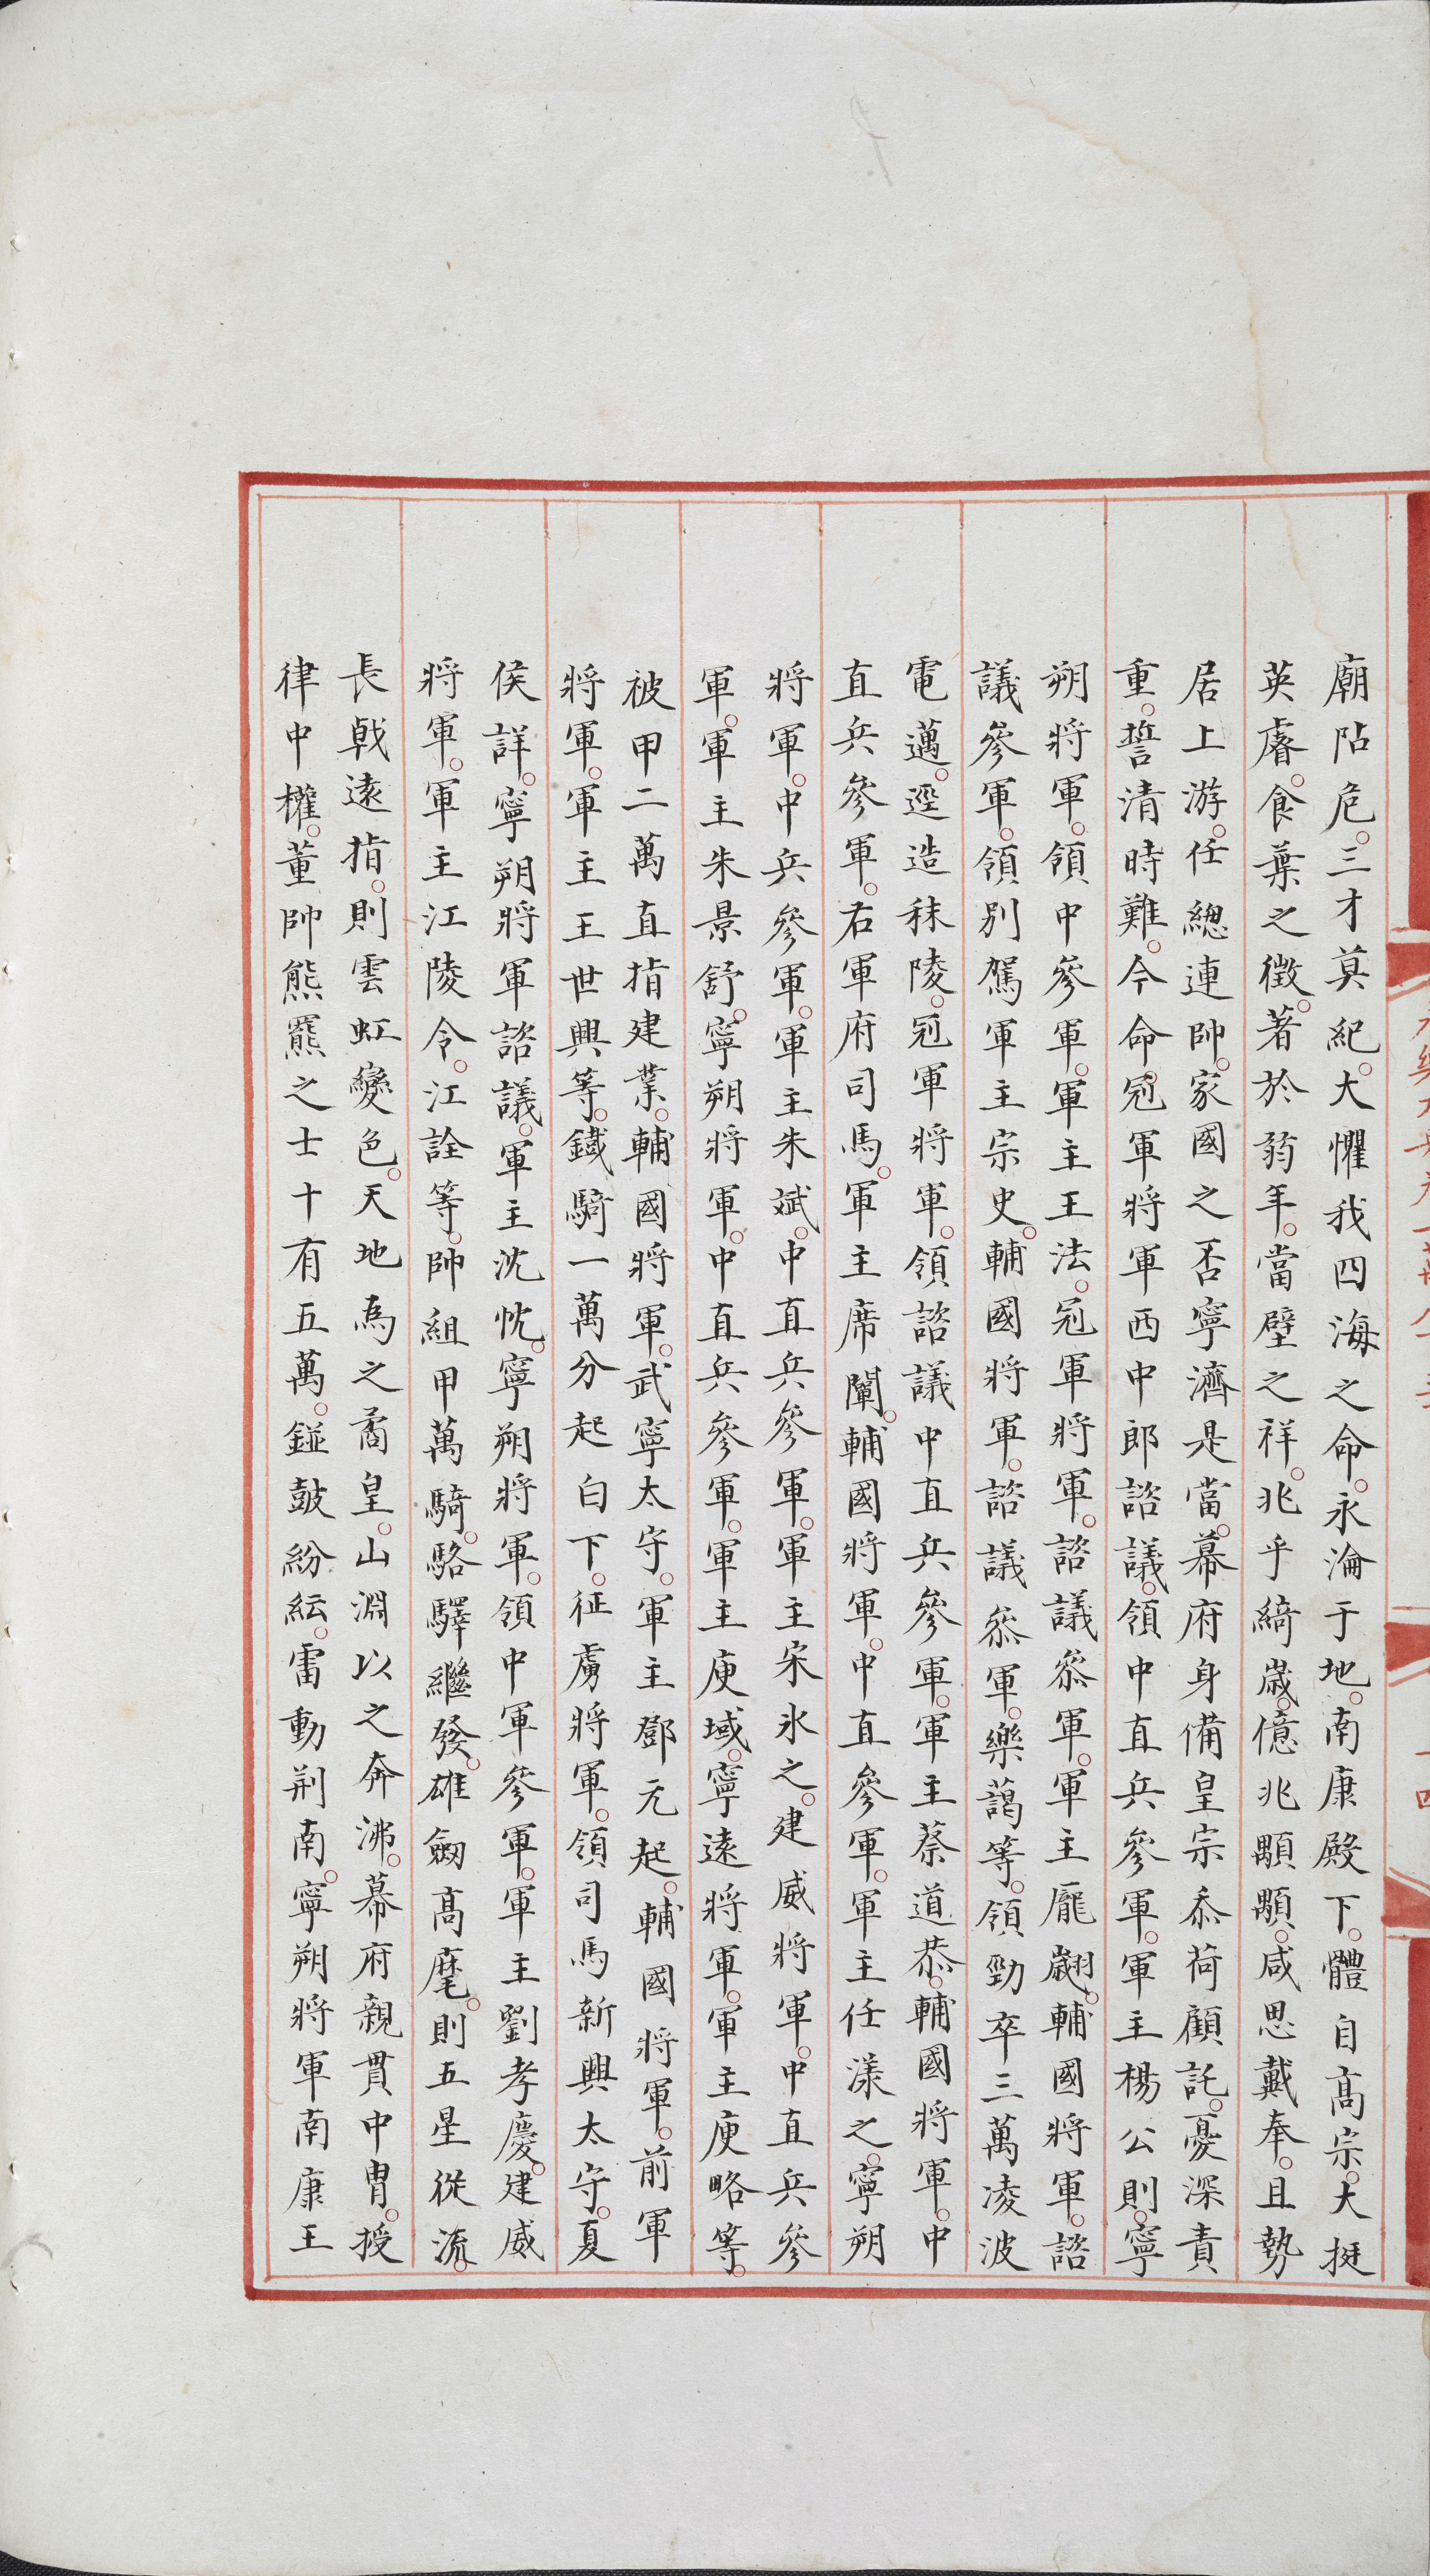 廟阽危。三才莫紀。大懼我四海之命。永淪于地。南康殿下。體自髙宗。大挺
英睿。食葉之徵。著於弱年。當璧之祥。兆乎綺歲。億兆顒顒。咸思戴奉。且勢
居上游。任總連帥。家國之否寧濟是當。幕府身備皇宗忝荷顧託。憂深責
重。誓清時難。今命冠軍將軍西中郎諮議。領中直兵參軍。軍主楊公則。寧
朔將軍。領中參軍。軍主王法。冠軍將軍。諮議叅軍。軍主龐翽。輔國將軍。諮
議參軍。領別駕軍主宗史。輔國將軍。諮議叅軍。樂藹等。領勁卒三萬凌波
電邁。逕造秣陵。冠軍將軍。領諮議中直兵參軍。軍主蔡道恭。輔國將軍。中
直兵參軍。右軍府司馬。軍主席闡。輔國將軍。中直參軍。軍主任漾之。寧朔
將軍。中兵參軍。軍主朱斌。中直兵參軍。軍主宋氷之。建威將軍。中直兵參
軍。軍主朱景舒。寧朔將軍。中直兵參軍。軍主庾域。寧遠將軍。軍主庾略等。
被甲二萬直指建業。輔國將軍。武寧太守。軍主鄧元起。輔國將軍。前軍
將軍。軍主王世興等。鐵騎一萬分起白下。征虜將軍。領司馬新興太守。夏
侯詳。寧朔將軍諮議。軍主沈忱。寧朔將軍。領中軍參軍。軍主劉孝慶。建威
將軍。軍主江陵令。江詮等。帥組甲萬騎。駱驛繼發。雄劒髙麾。則五星從流。
長戟遠指。則雲虹變色。天地為之矞皇。山淵以之奔沸。幕府親貫中冑。授
律中權。董帥熊羆之士十有五萬。鉦鼓紛紜。雷動荆南。寧朔將軍南康王